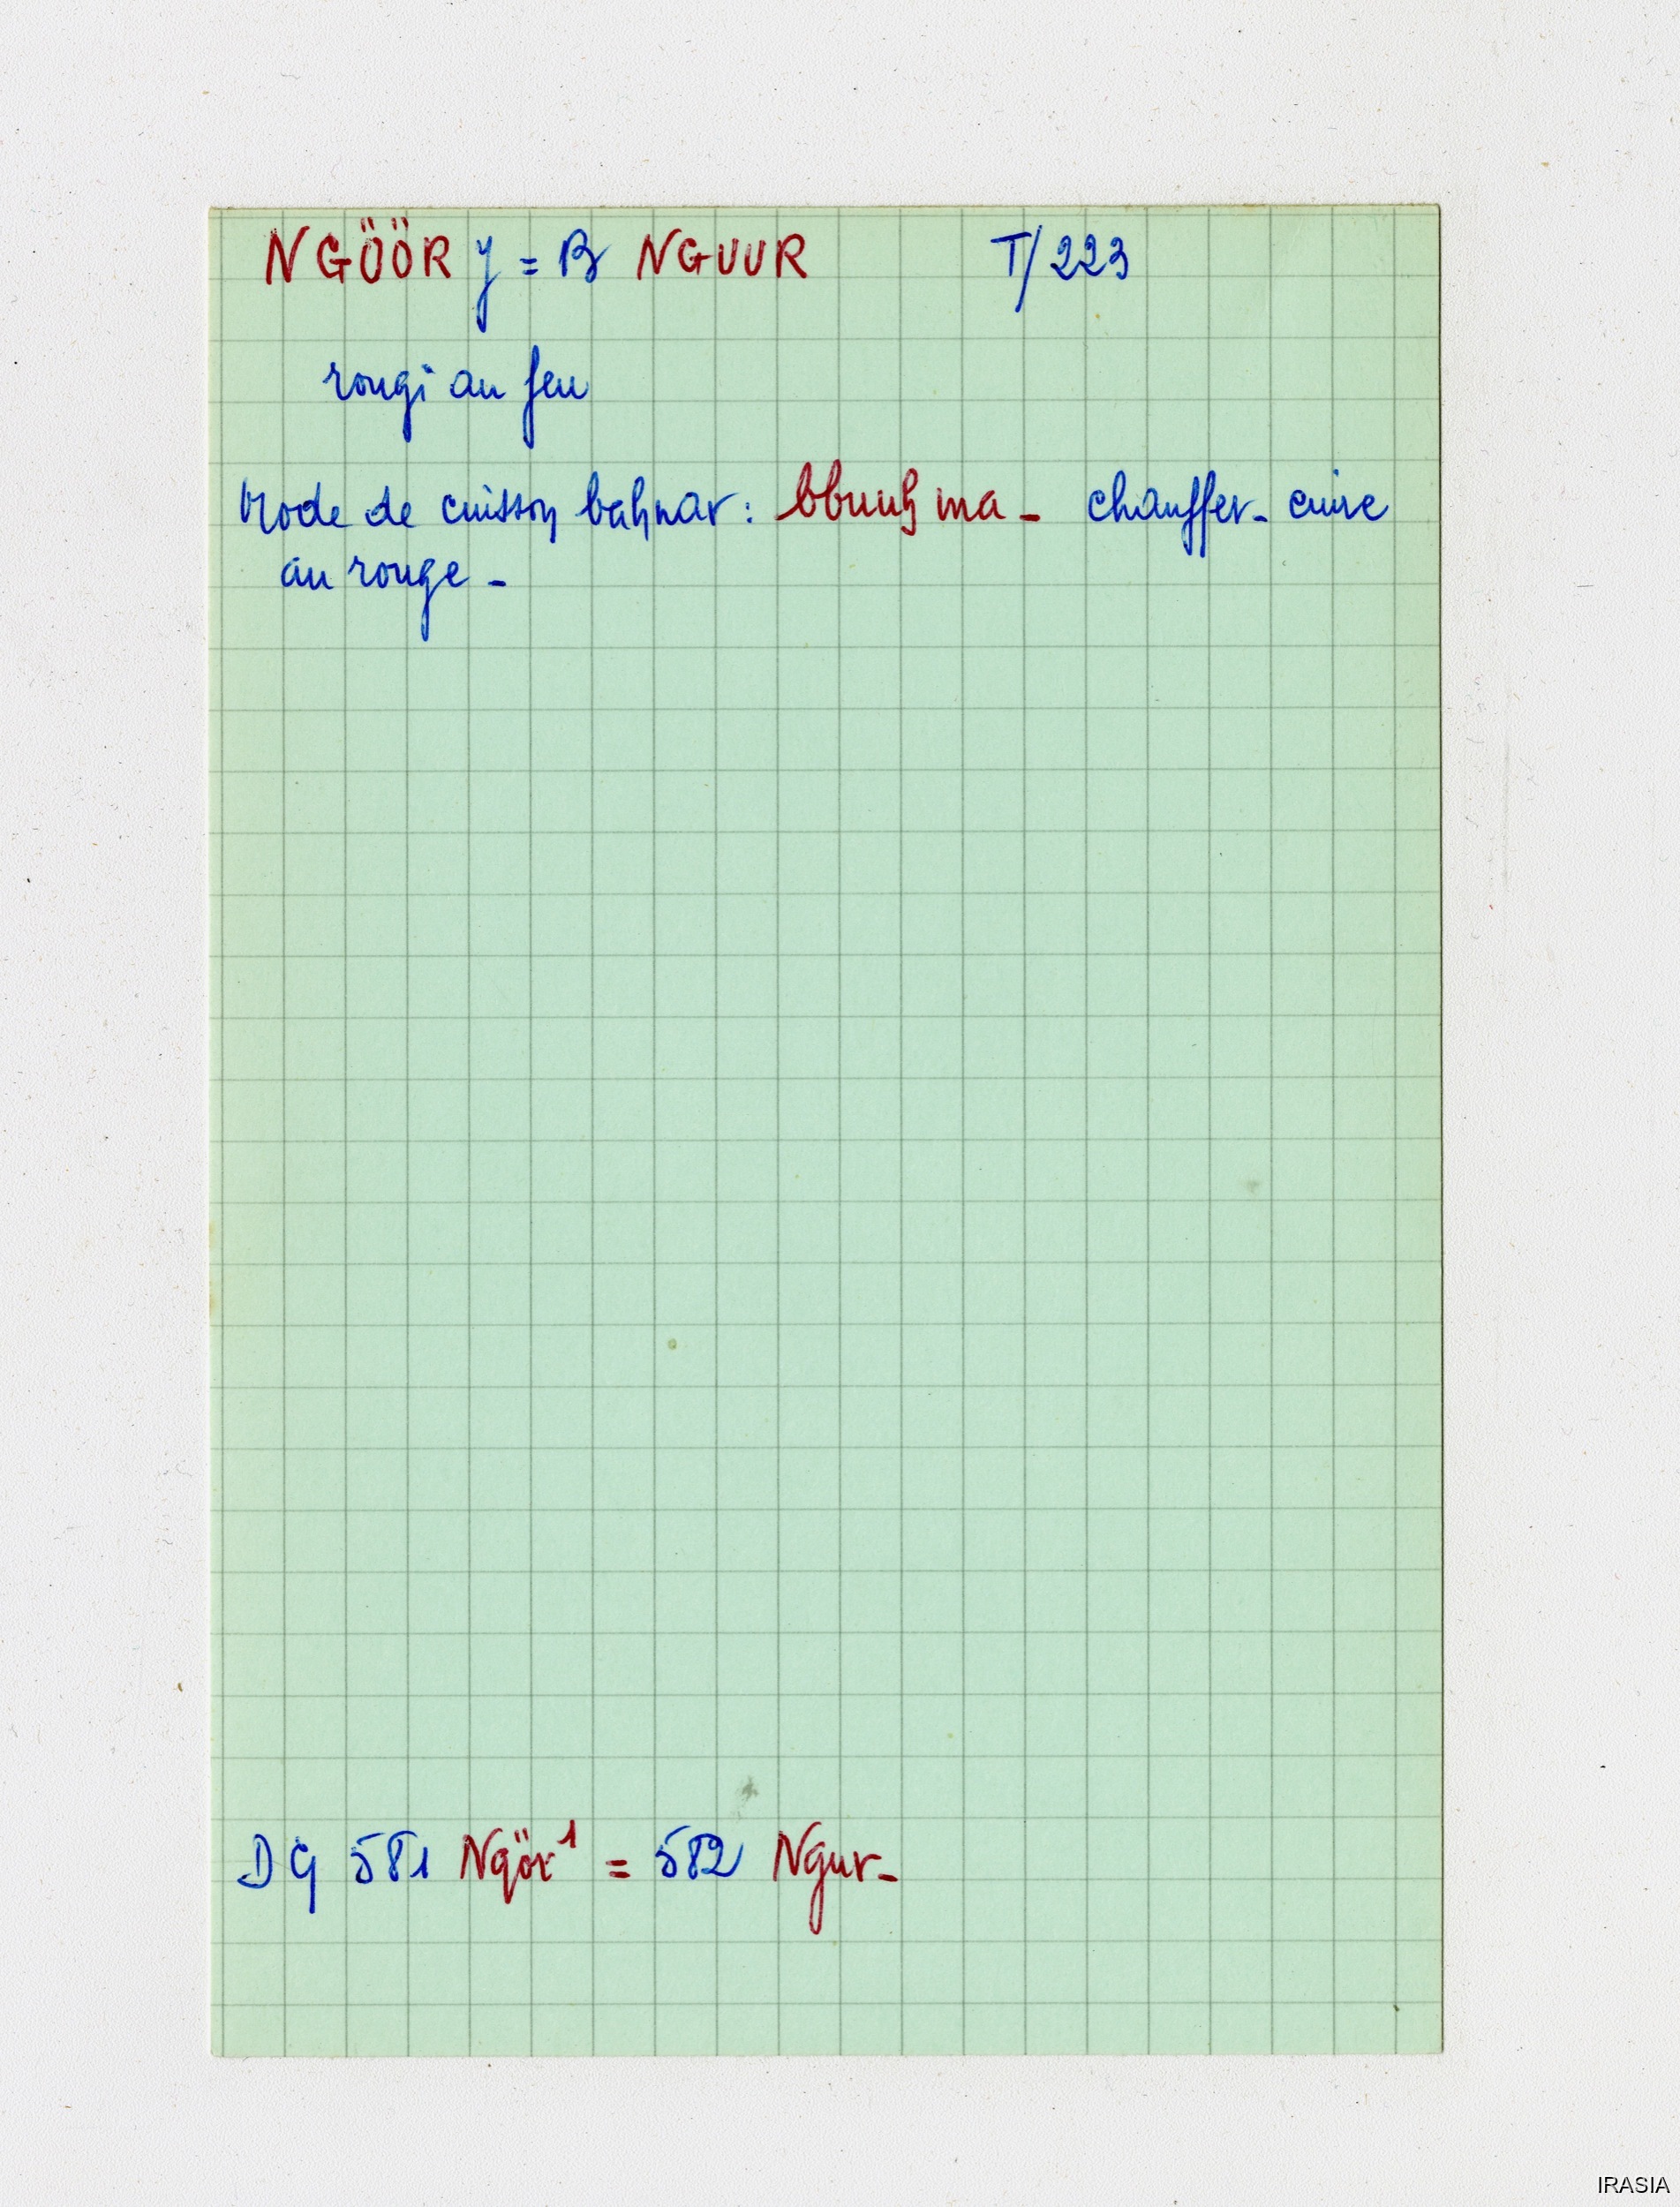 NGÖÖR y = B NGUUR T/223
rougi au feu
Mode de cuisson bahnar : bbuuh ma _ chauffer _ cuire
au rouge _
DG 581 Ngör¹ = 582 Ngur _
IRASIA